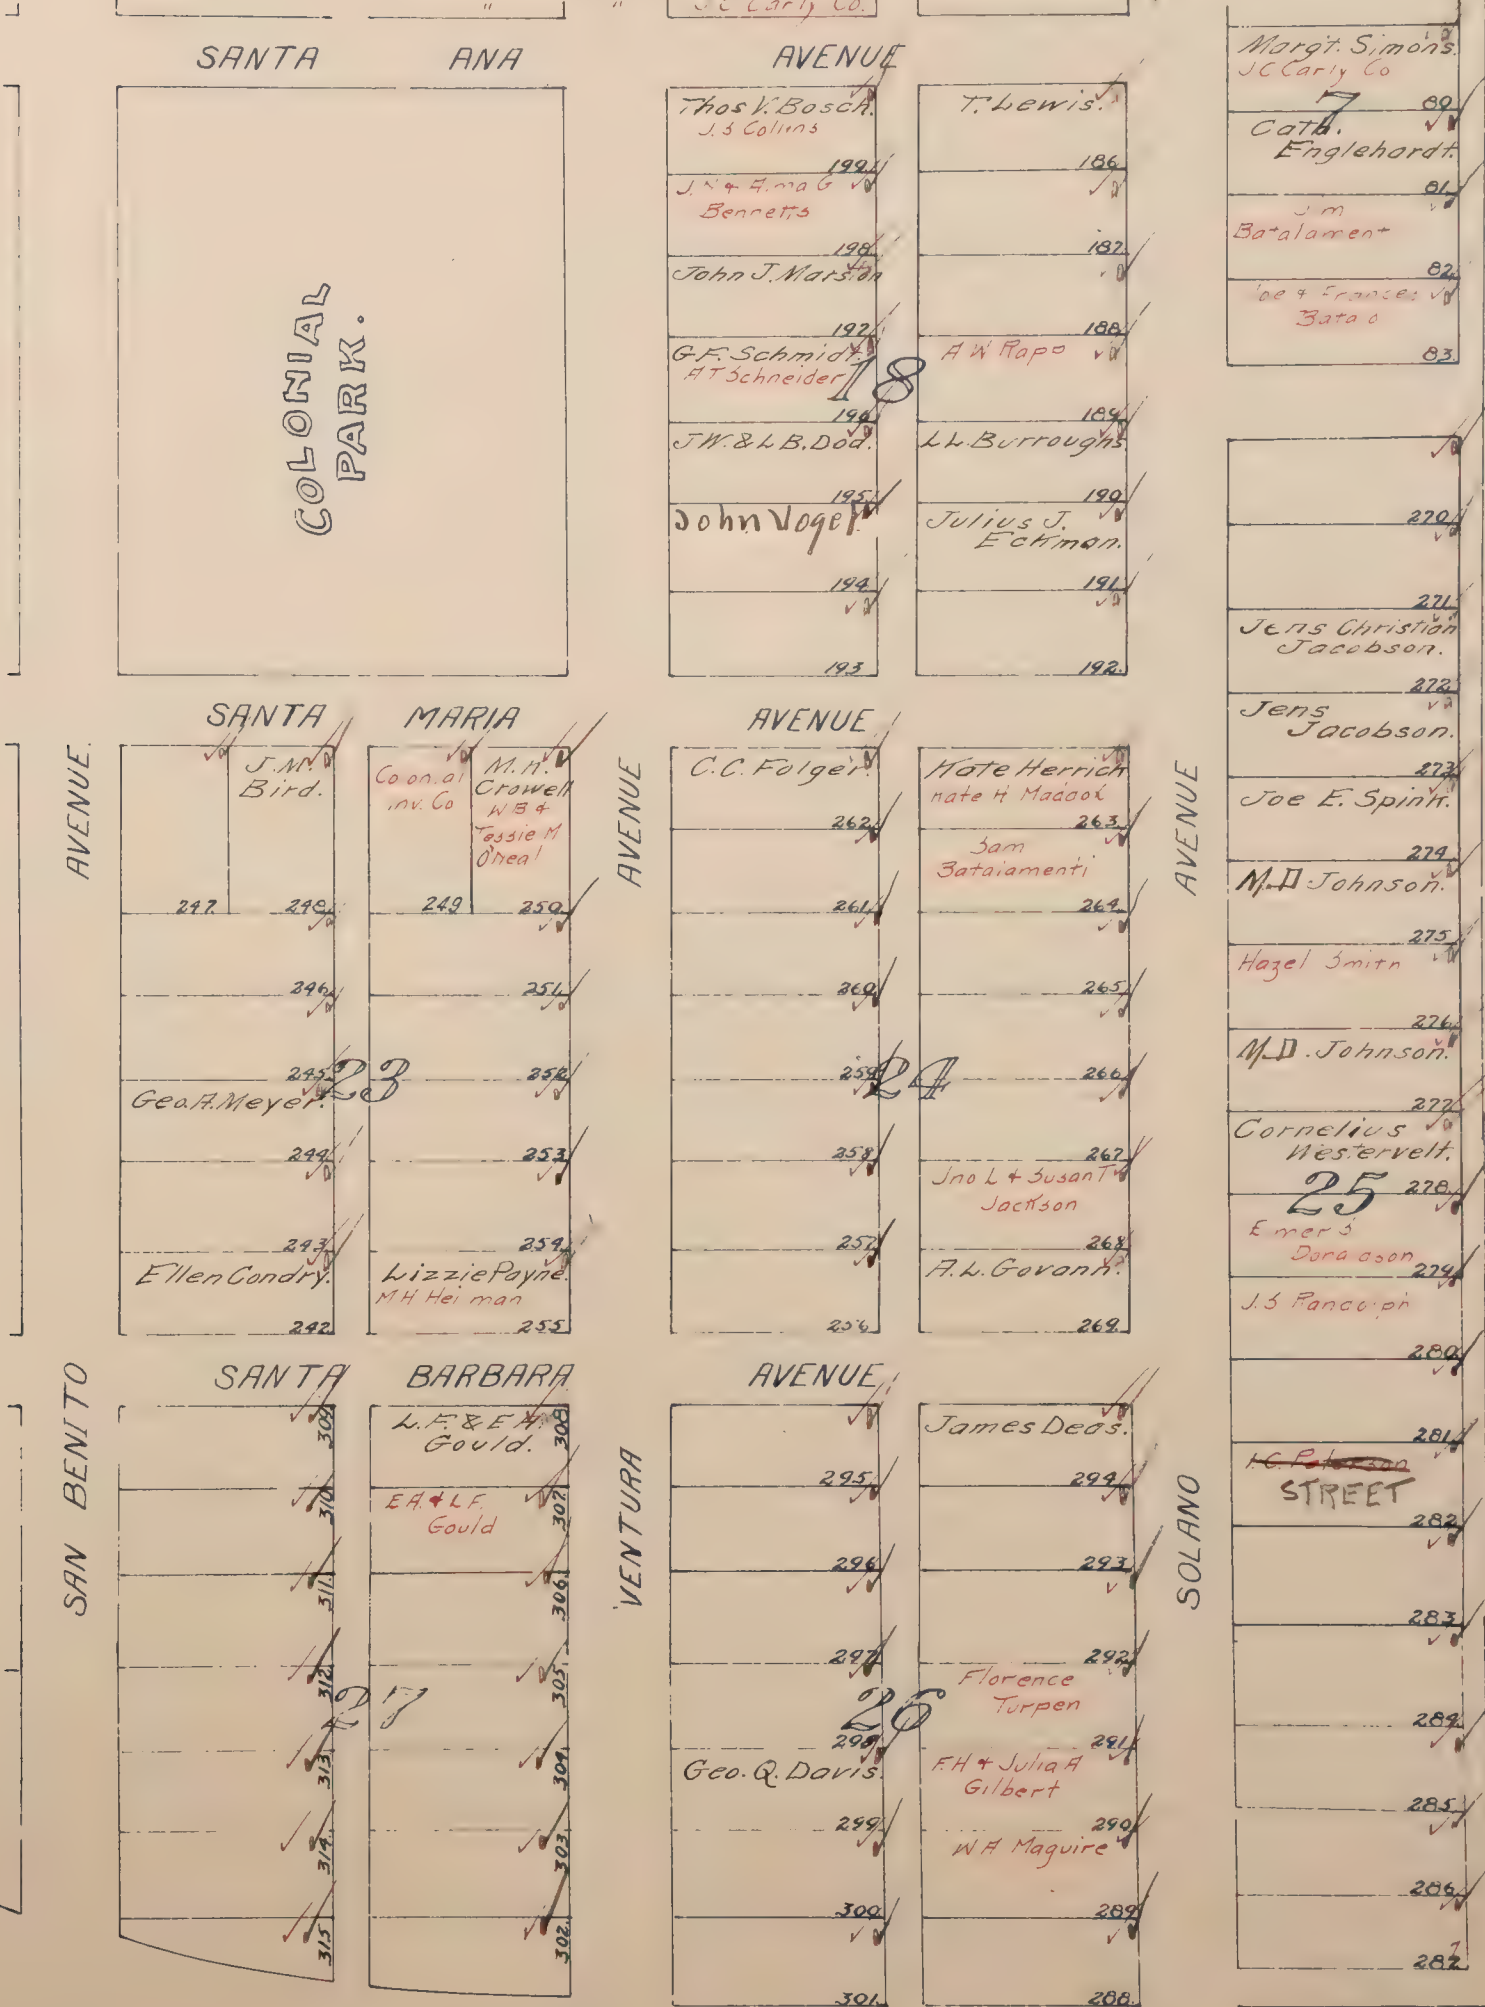 J C Carly Co.
SANTA ANA AVENUE
COLONIAL
PARK.
Thos V. Bosch.
J. S Collins
199
Bennetts
198
John J. Marston
197
G.F. Schmidt.
A T Schneider
196
J.W. & L B. Dod.
195
John Vogel
194
193
18
T. Lewis.
186
187
188
A W Rapo
189
L L. Burroughs
190
Julius J.
Eckman.
191
192
Margt. Simons.
J C Carly Co
80
7
Cath.
Englehardt.
81
J M
82
83
270
271
Jens Christian
Jacobson.
272
Jens
Jacobson.
273
Joe E. Spink.
274
M.D. Johnson.
275
Hazel Smith
276
M.D. Johnson.
277
Cornelius
Westervelt.
25
278
279
J. S Randolph
280
281
STREET
282
283
284
285
286
287
SANTA MARIA AVENUE
AVENUE
247
J. M.
Bird.
248
246
245
Geo. A. Meyer.
244
243
Ellen Condry.
242
23
Colonial
inv. Co
249
M. H.
Crowell
W B &
Tessie M
O'Neal
250
251
252
253
254
Lizzie Payne.
M H Heiman
255
AVENUE
C.C. Folger.
262
261
260
259
258
257
256
24
Kate Herrick
Kate H Maddox
263
Sam
Batalamenti
264
265
266
267
Jno L & Susan T
Jackson
268
A. L. Govann.
269
AVENUE
SANTA BARBARA AVENUE
SAN BENITO
309
310
311
312
313
314
315
27
L. F. & E A.
Gould.
308
E A. & L F.
Gould
307
306
305
304
303
302
VENTURA
295
296
297
298
Geo. Q. Davis.
299
300
301
26
James Deas.
294
293
292
Florence
Turpen
291
F. H & Julia A
Gilbert
290
W A Maguire
289
288
SOLANO